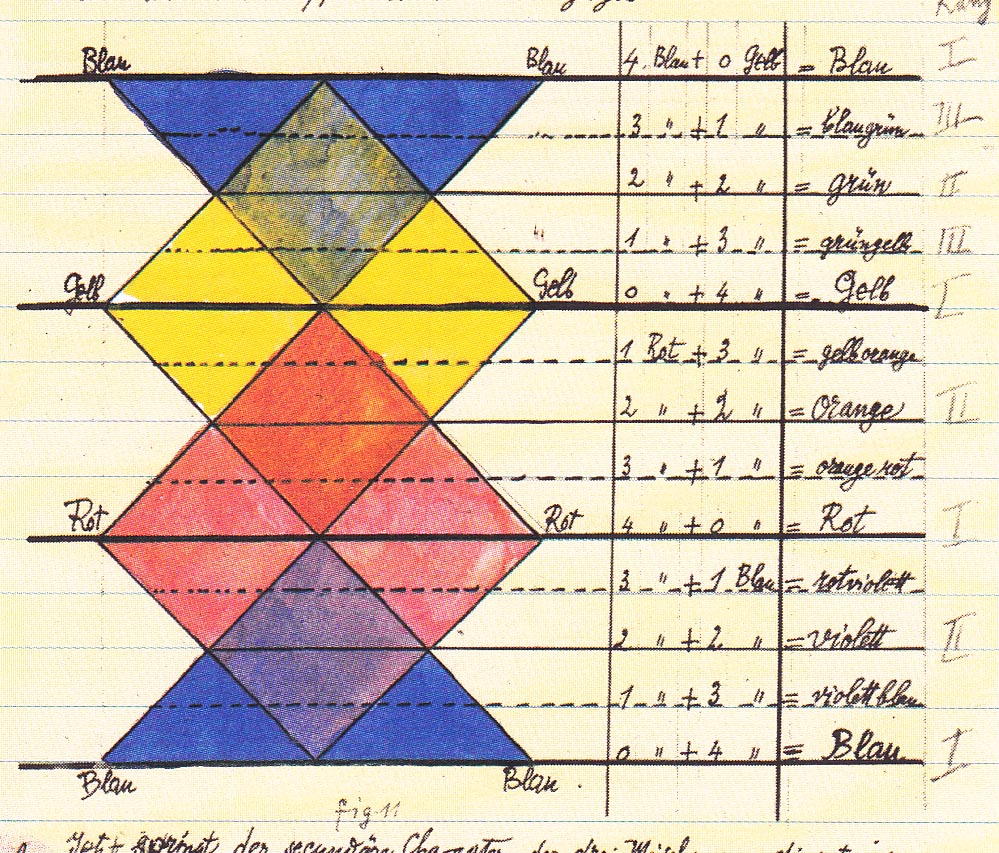 Rang
Blau Blau 4 Blau + 0 Gelb = Blau I
3 " + 1 " = blaugrün III
2 " + 2 " = grün II
1 " + 3 " = grüngelb III
Gelb Gelb 0 " + 4 " = Gelb I
1 Rot + 3 " = gelborange
2 " + 2 " = Orange II
3 " + 1 " = orangerot
Rot Rot 4 " + 0 " = Rot I
3 " + 1 Blau = rotviolett
2 " + 2 " = violett II
1 " + 3 " = violettblau
0 " + 4 " = Blau I
Blau Blau
fig. 11
der secundäre der drei